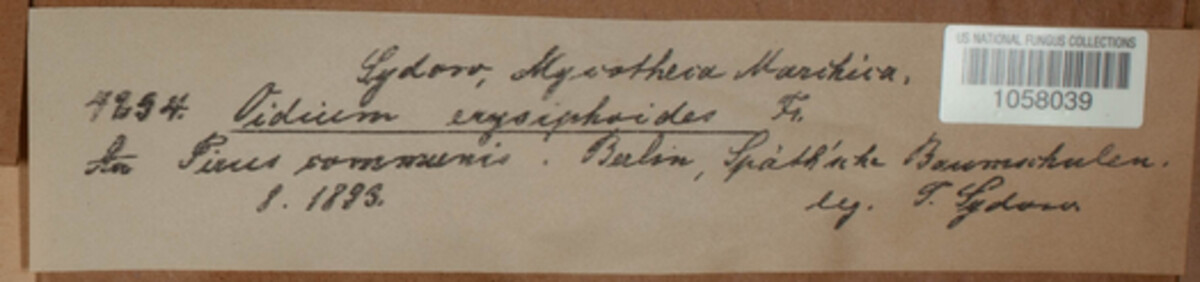 Sydow, Mycotheca Marchica.
US NATIONAL FUNGUS COLLECTIONS
1058039
4234. Oidium erysiphoides Fr.
An Pirus communis. Berlin, Späth'sche Baumschulen.
8. 1893.
leg. P. Sydow.